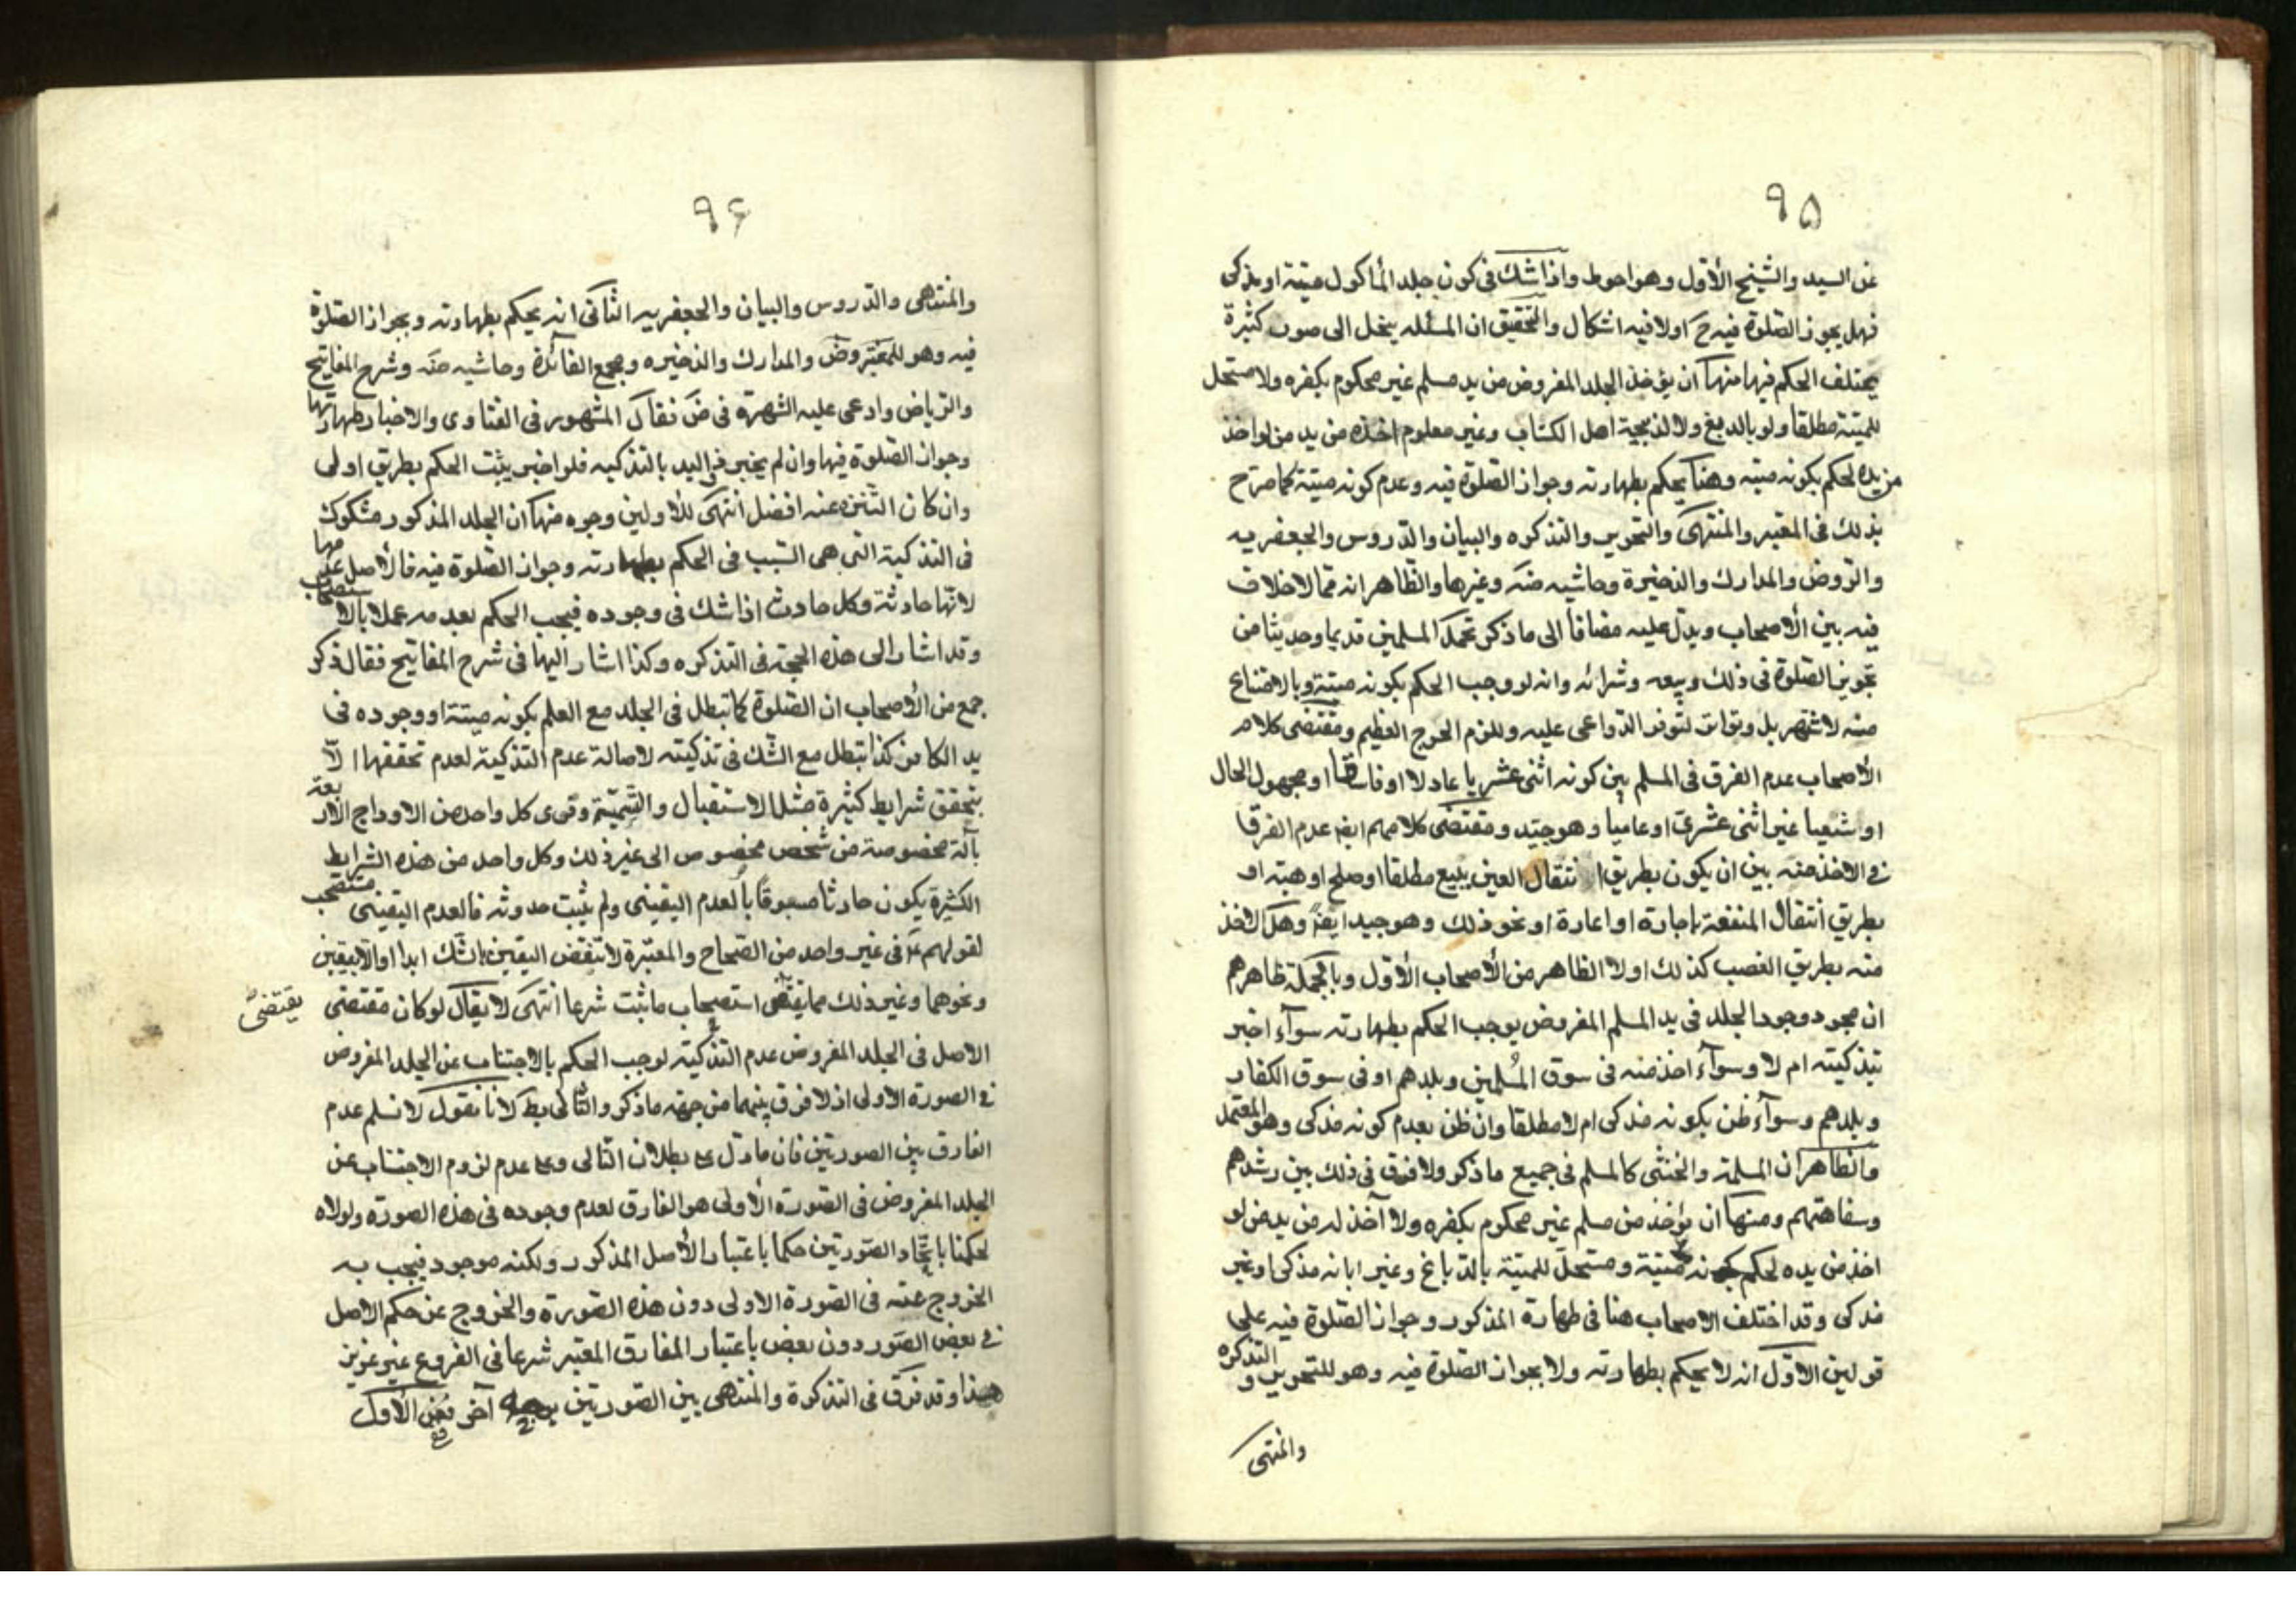 ٩٥
عن السيد والشيخ الأول وهو احوط واذا شك فى كون جلد المأكول ميتة او مذكى
فهل يجوز الصلوة فيه ح اولا فيه اشكال والتحقيق ان المسئله ينحل الى صور كثيرة
يختلف الحكم فيها منها ان يؤخذ الجلد المفروض من يد مسلم غير محكوم بكفره ولا مستحل
للميتة مطلقا ولو بالدبغ ولا لذبيحة اهل الكتاب وغير معلوم اخذه من يد من لو اخذ
من يده لحكم بكونه ميته وهنا يحكم بطهارته وجواز الصلوة فيه وعدم كونه ميتة كما صرح
بذلك فى المعتبر والمنتهى والتحرير والتذكره والبيان والدروس والجعفريه
والروض والمدارك والذخيرة وحاشيه منه وغيرها والظاهر انه مما لا خلاف
فيه بين الأصحاب ويدل عليه مضافا الى ما ذكر تحمد المسلمين قديما وحديثا من
تجويز الصلوة فى ذلك وبيعه وشرائه وانه لو وجب الحكم بكونه ميتة وبالامتناع
منه لاشتهر بل وتواتر لتوفر الدواعى عليه وللزم الحرج العظيم ومقتضى كلام
الأصحاب عدم الفرق فى المسلم بين كونه اثنى عشريا عادلا او فاسقا او مجهول الحال
او شيعيا غير اثنى عشرى او عاميا وهو جيد ومقتضى كلامهم ايضا عدم الفرق
فى الاخذ منه بين ان يكون بطريق انتقال العين ببيع مطلقا او صلح او هبة او
بطريق انتقال المنفعة باجارة او اعارة او نحو ذلك وهو جيد ايضا وهل الاخذ
منه بطريق الغصب كذلك اولا الظاهر من الأصحاب الأول وبالجملة ظاهرهم
ان مجرد وجود الجلد فى يد المسلم المفروض يوجب الحكم بطهارته سوآء اخبر
بتذكيته ام لا وسوآء اخذ منه فى سوق المسلمين وبلدهم او فى سوق الكفار
وبلدهم وسوآء ظن بكونه مذكى ام لا مطلقا وان ظن بعدم كونه مذكى وهو المعتمد
والظاهر ان المسلمة والخنثى كالمسلم فى جميع ما ذكر ولا فرق فى ذلك بين رشدهم
وسفاهتهم ومنها ان يؤخذ من مسلم غير محكوم بكفره ولا آخذ له من يد من لو
اخذ من يده لحكم بكونه ميتة ومستحل للميتة بالدباغ وغير ابانه مذكى او غير
مذكى وقد اختلف الاصحاب هنا فى طهارة المذكور وجواز الصلوة فيه على
قولين الاول انه لا يحكم بطهارته ولا بجواز الصلوة فيه وهو للتحرير والتذكره
والمنتهى
٩۶
والمنتهى والدروس والبيان والجعفريه الثانى انه يحكم بطهارته وبجواز الصلوة
فيه وهو للمعتبر وض والمدارك والذخيره ومجمع الفائدة وحاشيه منه وشرح المفاتيح
والرياض وادعى عليه الشهرة فى ض فقال المشهور فى الفتاوى والاخبار طهارتها
وجواز الصلوة فيها وان لم يخبر ذو اليد بالتذكيه فلو اخبر يثبت الحكم بطريق اولى
وان كان التنزه عنه افضل انتهى للأولين وجوه منها ان الجلد المذكور مشكوك
فى التذكية التى هى السبب فى الحكم بطهارته وجواز الصلوة فيه فالأصل عدمها
لانها حادثة وكل حادث اذا شك فى وجوده فيجب الحكم بعدمه عملا بالاستصحاب
وقد اشار الى هذه الحجة فى التذكره وكذا اشار اليها فى شرح المفاتيح فقال ذكر
جمع من الأصحاب ان الصلوة كما تبطل فى الجلد مع العلم بكونه ميتة او وجوده فى
يد الكافر كذا تبطل مع الشك فى تذكيته لاصالة عدم التذكية لعدم تحققها الا
بتحقق شرايط كثيرة مثل الاستقبال والتسمية وفرى كل واحد من الاوداج الاربعة
بآلة مخصوصة من شخص مخصوص الى غير ذلك وكل واحد من هذه الشرايط
الكثيرة يكون حادثا مسبوقا بالعدم اليقينى ولم يثبت حدوثه فالعدم اليقينى مستصحب
لقولهم ع فى غير واحد من الصحاح والمعتبرة لا تنقض اليقين بالشك ابدا او الا بيقين
ونحوهما وغير ذلك مما يقتضى استصحاب ما ثبت شرعا انتهى لا يقال لو كان مقتضى
يقتضى
الاصل فى الجلد المفروض عدم التذكية لوجب الحكم بالاجتناب عن الجلد المفروض
فى الصورة الاولى اذ لا فرق بينهما من جهة ما ذكر والتالى بط لانا نقول لا نسلم عدم
الفارق بين الصورتين فان ما دل على بطلان التالى وعلى عدم لزوم الاجتناب عن
الجلد المفروض فى الصورة الأولى هو الفارق لعدم وجوده فى هذه الصورة ولولاه
لحكمنا باتحاد الصورتين حكما باعتبار الأصل المذكور ولكنه موجود فيجب به
الخروج عنه فى الصورة الاولى دون هذه الصورة والخروج عن حكم الاصل
فى بعض الصور دون بعض باعتبار المفارق المعتبر شرعا فى الفروع غير عزيز
هذا وقد فرق فى التذكرة والمنتهى بين الصورتين بوجه آخر ففى الأول